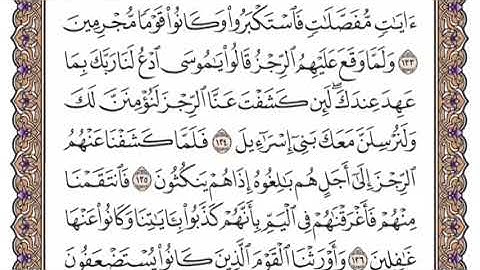 ءَايَـٰتٍ مُّفَصَّلَـٰتٍ فَٱسْتَكْبَرُوا۟ وَكَانُوا۟ قَوْمًا مُّجْرِمِينَ
١٣٣ وَلَمَّا وَقَعَ عَلَيْهِمُ ٱلرِّجْزُ قَالُوا۟ يَـٰمُوسَى ٱدْعُ لَنَا رَبَّكَ بِمَا
عَهِدَ عِندَكَ ۖ لَئِن كَشَفْتَ عَنَّا ٱلرِّجْزَ لَنُؤْمِنَنَّ لَكَ
وَلَنُرْسِلَنَّ مَعَكَ بَنِىٓ إِسْرَٰٓءِيلَ ١٣٤ فَلَمَّا كَشَفْنَا عَنْهُمُ
ٱلرِّجْزَ إِلَىٰٓ أَجَلٍ هُم بَـٰلِغُوهُ إِذَا هُمْ يَنكُثُونَ ١٣٥ فَٱنتَقَمْنَا
مِنْهُمْ فَأَغْرَقْنَـٰهُمْ فِى ٱلْيَمِّ بِأَنَّهُمْ كَذَّبُوا۟ بِـَٔايَـٰتِنَا وَكَانُوا۟ عَنْهَا
غَـٰفِلِينَ ١٣٦ وَأَوْرَثْنَا ٱلْقَوْمَ ٱلَّذِينَ كَانُوا۟ يُسْتَضْعَفُونَ